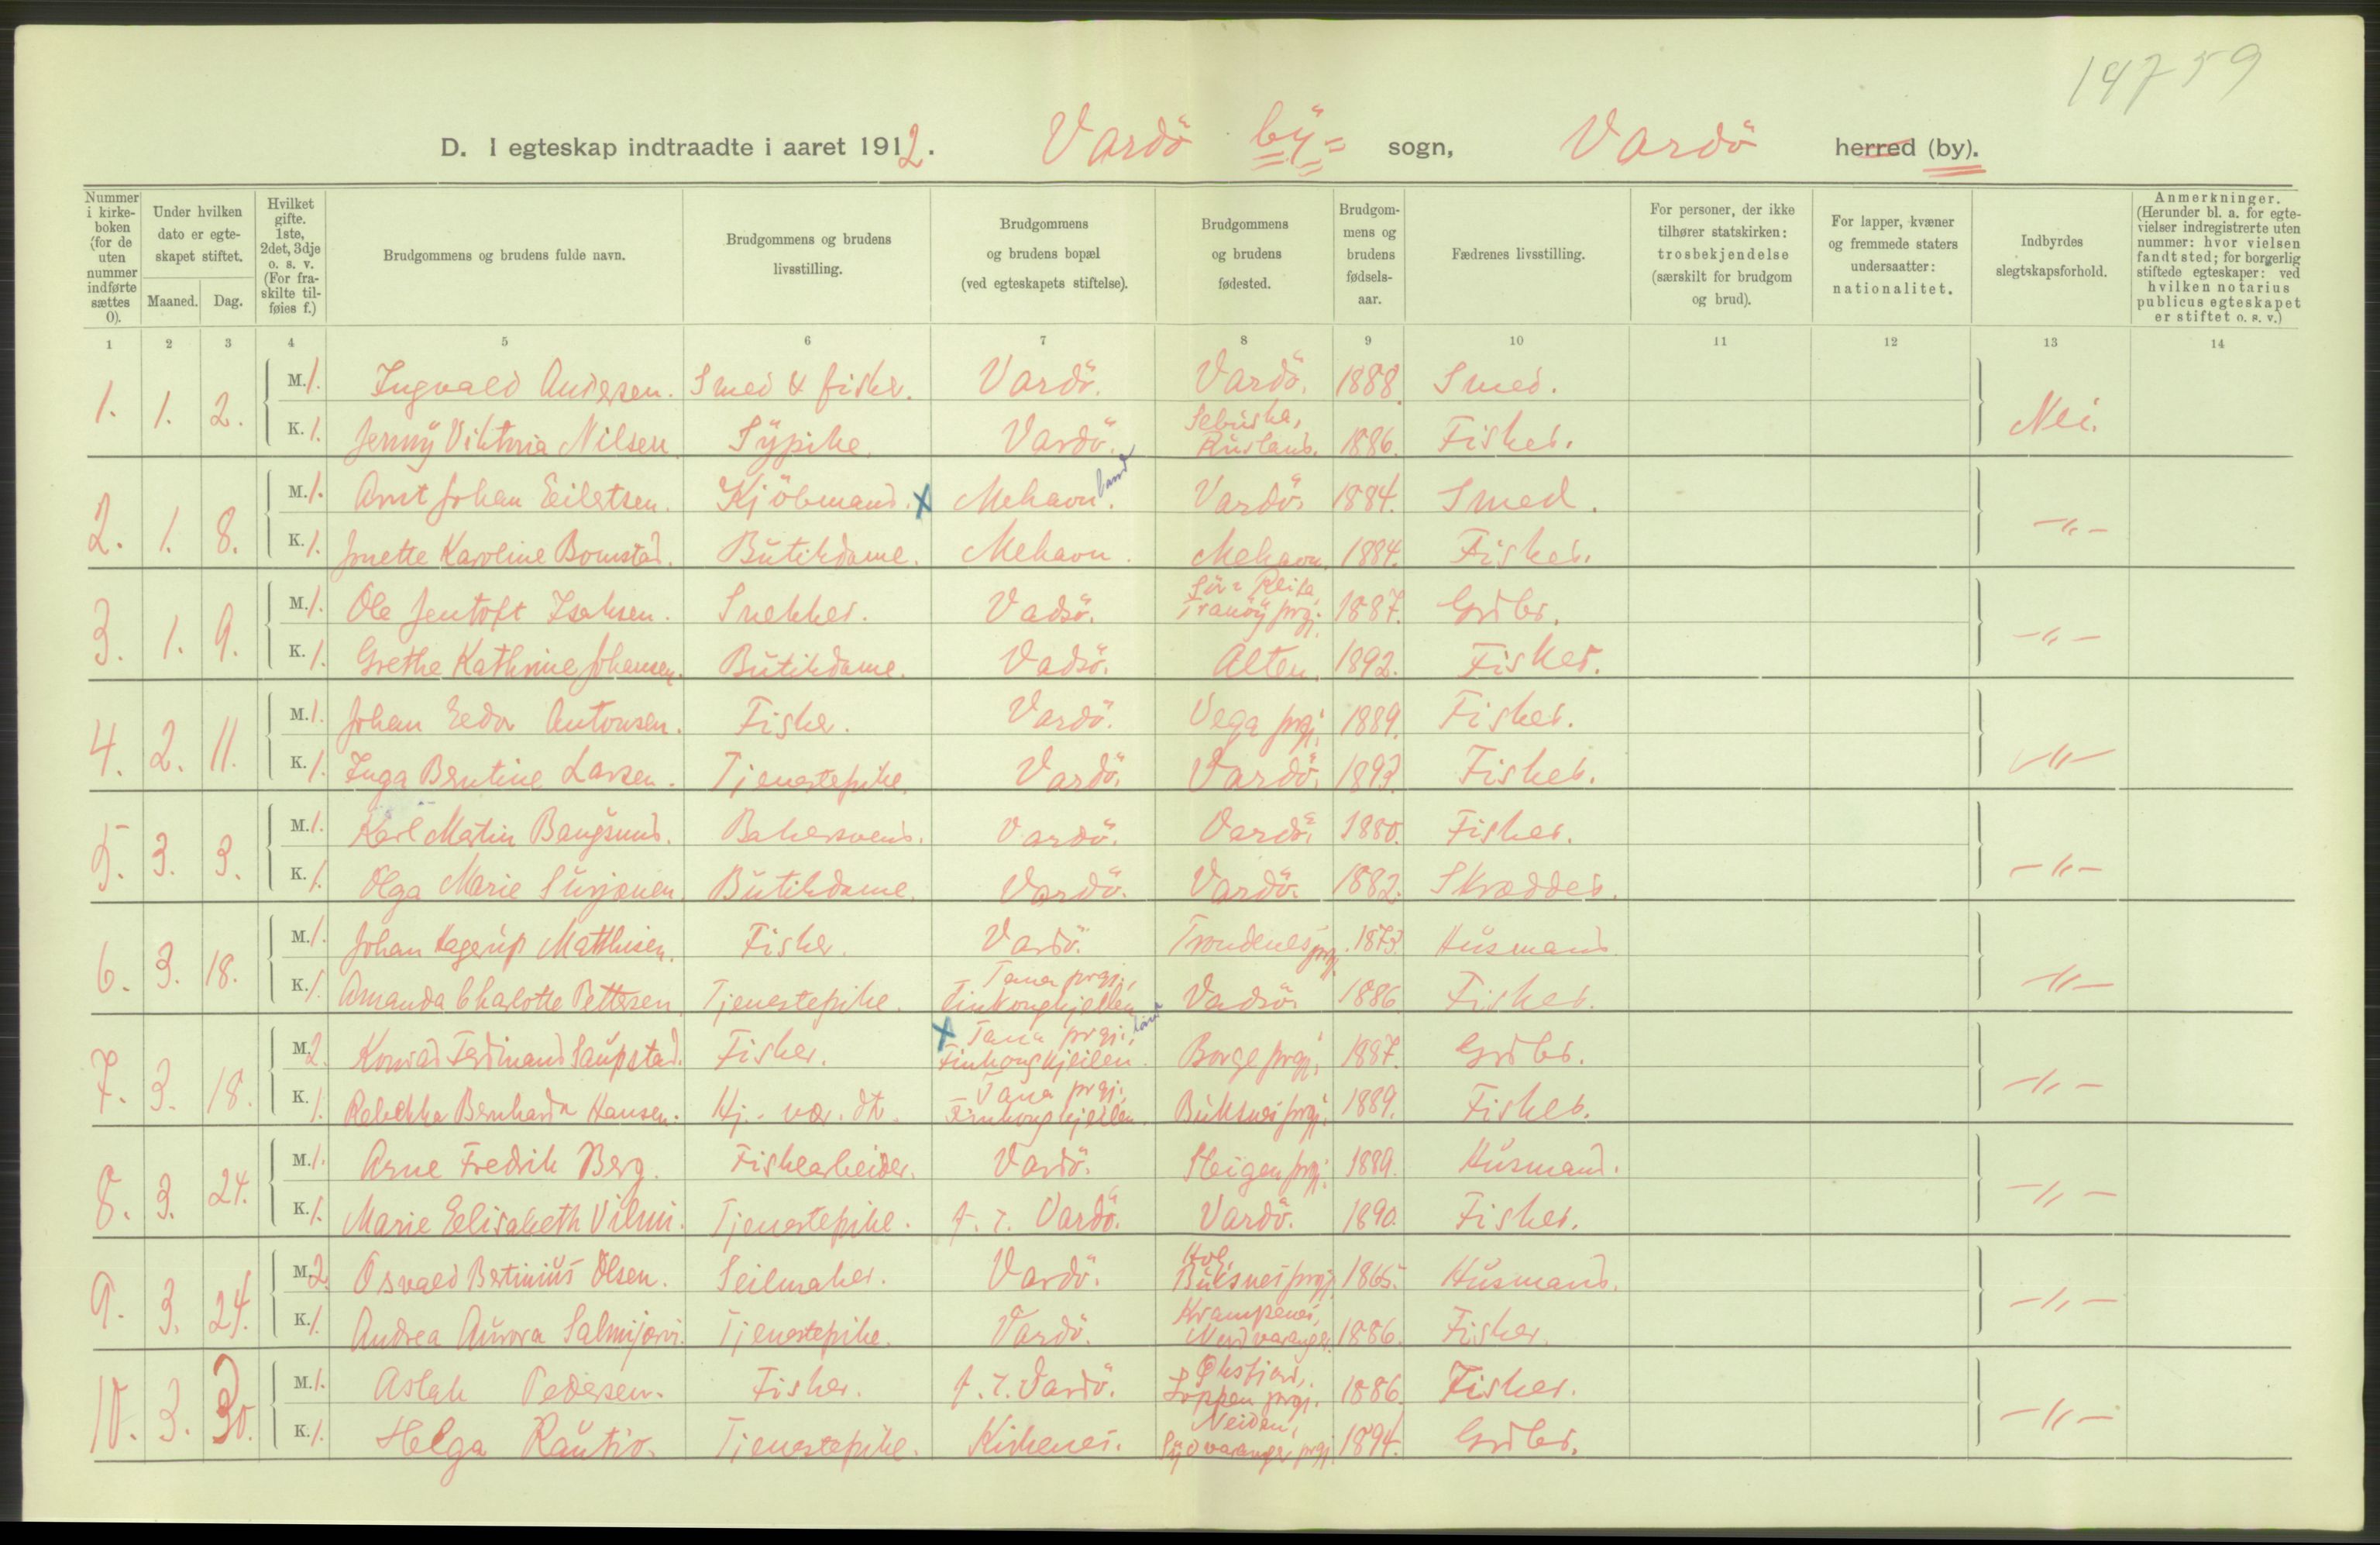 14759
D. I egteskap indtraadte i aaret 1912. Vardö by= sogn, Vardö herred (by).
Nummer i kirke-boken (for de uten nummer indførte sættes 0).
Under hvilken dato er egte-skapet stiftet.
Maaned. Dag.
Hvilket gifte. 1ste, 2det, 3dje o. s. v. (For fra-skilte til-føies f.)
Brudgommens og brudens fulde navn.
Brudgommens og brudens livsstilling.
Brudgommens og brudens bopæl (ved egteskapets stiftelse).
Brudgommens og brudens fødested.
Brudgom-mens og brudens fødsels-aar.
Fædrenes livsstilling.
For personer, der ikke tilhører statskirken: trosbekjendelse (særskilt for brudgom og brud).
For lapper, kvæner og fremmede staters undersaatter: nationalitet.
Indbyrdes slegtskapsforhold.
Anmerkninger. (Herunder bl. a. for egte-vielser indregistrerte uten nummer: hvor vielsen fandt sted; for borgerlig stiftede egteskaper: ved hvilken notarius publicus egteskapet er stiftet o. s. v.)
1 2 3 4 5 6 7 8 9 10 11 12 13 14
1. 1. 2. M. 1. Ingvald Andersen. Smed & fisker. Vardö. Vardö. 1888. Smed. Nei.
K. 1. Jenny Viktoria Nilsen Sypike. Vardö. Rusland. 1886. Fisker.
2. 1. 8. M. 1. Arnt Johan Eilertsen. Kjöbmand. x Mehavn. Vardö. 1884. Smed. -"-
K. 1. Jonette Karoline Bomstad. Butikdame. Mehavn. Mehavn. 1884. Fisker.
3. 1. 9. M. 1. Ole Jentoft Isaksen. Snekker. Vadsö. Sör= Reisa, Tranöy prgj. 1887. Grdbr. -"-
K. 1. Grethe Kathrine Johansen. Butikdame. Vadsö. Alten. 1892. Fisker.
4. 2. 11. M. 1. Johan Eedor Antonsen. Fisker. Vardö. Vega prgj. 1889. Fisker. -"-
K. 1. Inga Bentine Larsen. Tjenestepike. Vardö. Vardö. 1893. Fisker.
5. 3. 3. M. 1. Karl Martin Bangsund. Bakersvend. Vardö. Vardö. 1880. Fisker. -"-
K. 1. Olga Marie Butikdame. Vardö. Vardö. 1882. Skrædder.
6. 3. 18. M. 1. Johan Hagerup Matthisen. Fisker. Vardö. Trondenes prgj. 1873. Husmand -"-
K. 1. Amanda Charlotte Pettersen Tjenestepike. Tana prgj., Finkongkjeilen Vadsö. 1886 Fisker.
7. 3. 18. M. 2. Konrad Ferdinand Saupstad. Fisker. x Tana prgj., Finkongkjeilen. Borge prgj. 1887. Grdbr. -"-
K. 1. Rebekka Bernharda Hansen. Hj.- vær. dtr. Tana prgj., Finkongkjeilen. Buksnes prgj. 1889. Fisker.
8. 3. 24. M. 1. Arne Fredrik Berg. Fiskearbeider. Vardö. Steigen prgj. 1889. Husmand. -"-
K. 1. Marie Eelisabeth Vilmi. Tjenestepike. f. t. Vardö. Vardö. 1890. Fisker.
9. 3. 24. M. 2 Osvald Bertinius Olsen. Seilmaker. Vardö. Hol, Buksnes prgj 1865. Husmand. -"-
K. 1. Andrea Aurora Salmijarvi. Tjenestepike. Vardö. Krampenes, Nordvaranger. 1886. Fisker.
10. 3. 30. M. 1. Aslak Pedersen. Fisker. f. t. Vardö. Öksfjord, Loppen prgj. 1886. Fisker. -"-
K. 1. Helga Rautio. Tjenestepike. Kirkenes. Neiden, Sydvaranger prgj 1894. Grdbr.